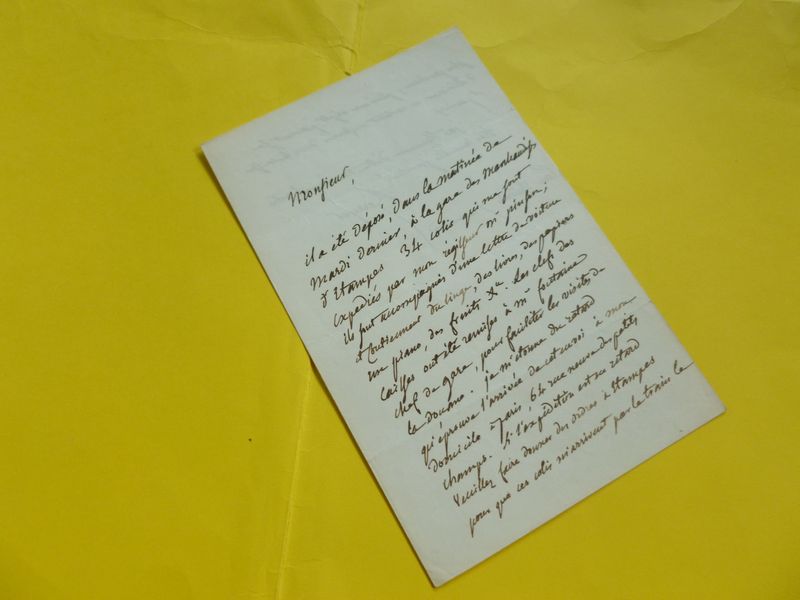 Monsieur,
il a été déposé, dans la matinée de
Mardi dernier, à la gare des Marchandises
d'Etampes 34 colis qui me sont
expédiés par mon régisseur mr pinson;
ils sont accompagnés d'une lettre de voiture
et contiennent du linge, des livres, des papiers
un piano, des fruits &a. Les clefs des
caisses ont été remises à mr fontaine
chef de gare, pour faciliter les visites de
la douane. je m'étonne du retard
qu'éprouve l'arrivée de cet envoi à mon
domicile - Paris 64 rue neuve des petits
champs. Si l'expédition est en retard
veuillez faire donner des ordres à Etampes
pour que ces colis m'arrivent par le train le